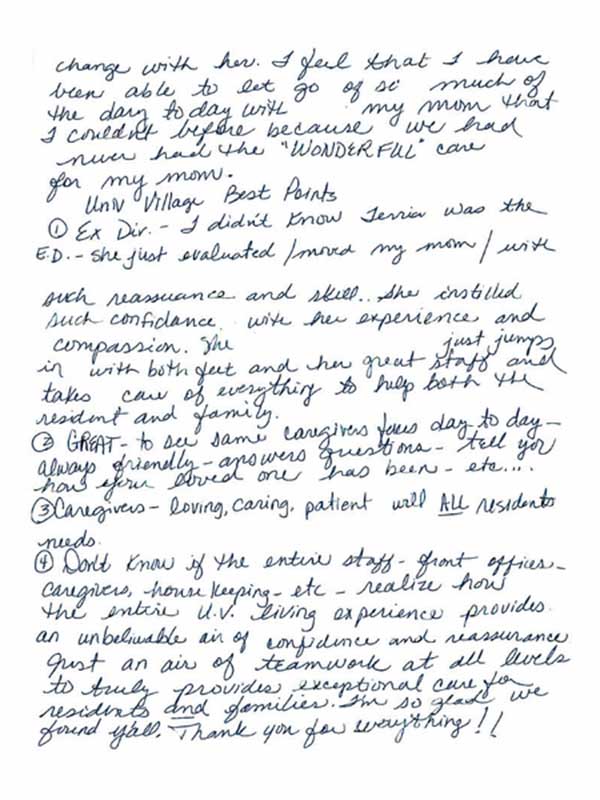 change with her. I feel that I have
been able to let go of so much of
the day today with my mom that
I couldn't before because we had
never had the "WONDERFUL" care
for my mom.
Univ Village Best Points
① Ex Dir. - I didn't know Terria was the
E.D. - she just evaluated / moved my mom / with
such reassuance and skill.. She instilled
such confidance with her experience and
compassion. She just jumps
in with both feet and her great staff and
takes care of everything to help both the
resident and family.
② GREAT - to see same caregivers faces day to day -
always friendly - answers questions - tell you
how your loved one has been - etc....
③ Caregivers - loving, caring, patient with ALL residents
needs.
④ Don't know if the entire staff - front offices -
caregivers, house keeping - etc - realize how
the entire U.V. living experience provides
an unbelievable air of confidence and reassurance
Just an air of teamwork at all levels
to truly provides exceptional care for
residents and families. I'm so glad we
found y'all. Thank you for everything!!